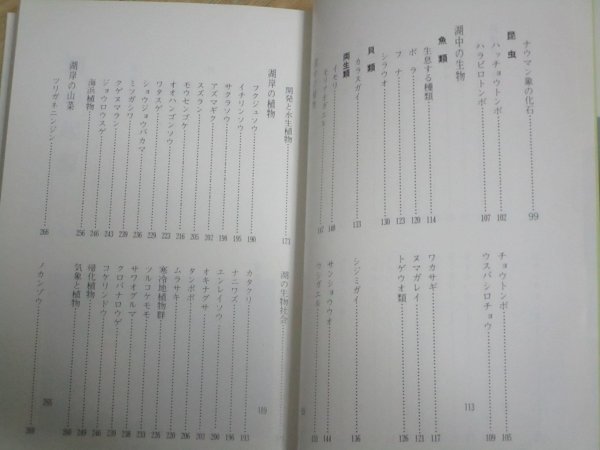 ナウマン象の化石 99
昆虫
ハッチョウトンボ 102
チョウトンボ 105
ハラビロトンボ 107
ウスバシロチョウ 109
湖中の生物 113
魚類
生息する種類 114
ワカサギ 117
ボラ 120
ヌマガレイ 121
フナ 123
トゲウオ類 126
シラウオ 130
貝類
カラスガイ 133
シジミガイ 136
両生類
イモリ 140
サンショウウオ 144
開発と水生植物 171
湖の生物社会 189
湖岸の植物
フクジュソウ 190
カタクリ 193
イチリンソウ 195
ナニワズ 196
サクラソウ 198
エンレイソウ 200
アズマギク
オキナグサ
スズラン 205
タンポポ 206
モウセンゴケ 216
ムラサキ 220
オオハンゴンソウ 222
寒冷地植物群 226
ワタスゲ 223
ツルコケモモ
ショウジョウバカマ 229
サワオグルマ
ミツガシワ 236
クロバナロウゲ 238
クゲヌマラン 239
コケリンドウ
ジョウロウスゲ 243
帰化植物 246
海浜植物 256
気象と植物 260
湖岸の山菜 265
ツリガネニンジン 266
ノカンゾウ 268